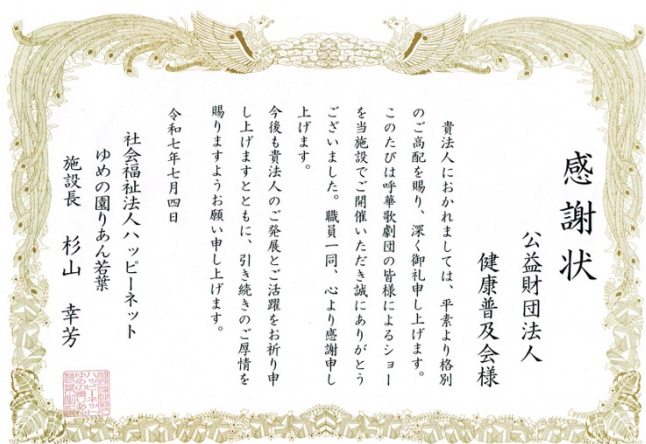 感謝状
公益財団法人
健康普及会様
貴法人におかれましては、平素より格別
のご高配を賜り、深く御礼申し上げます。
このたびは呼華歌劇団の皆様によるショー
を当施設でご開催いただき誠にありがとう
ございました。職員一同、心より感謝申し
上げます。
今後も貴法人のご発展とご活躍をお祈り申
し上げますとともに、引き続きのご厚情を
賜りますようお願い申し上げます。
令和七年七月四日
社会福祉法人ハッピーネット
ゆめの園りあん若葉
施設長 杉山 幸芳